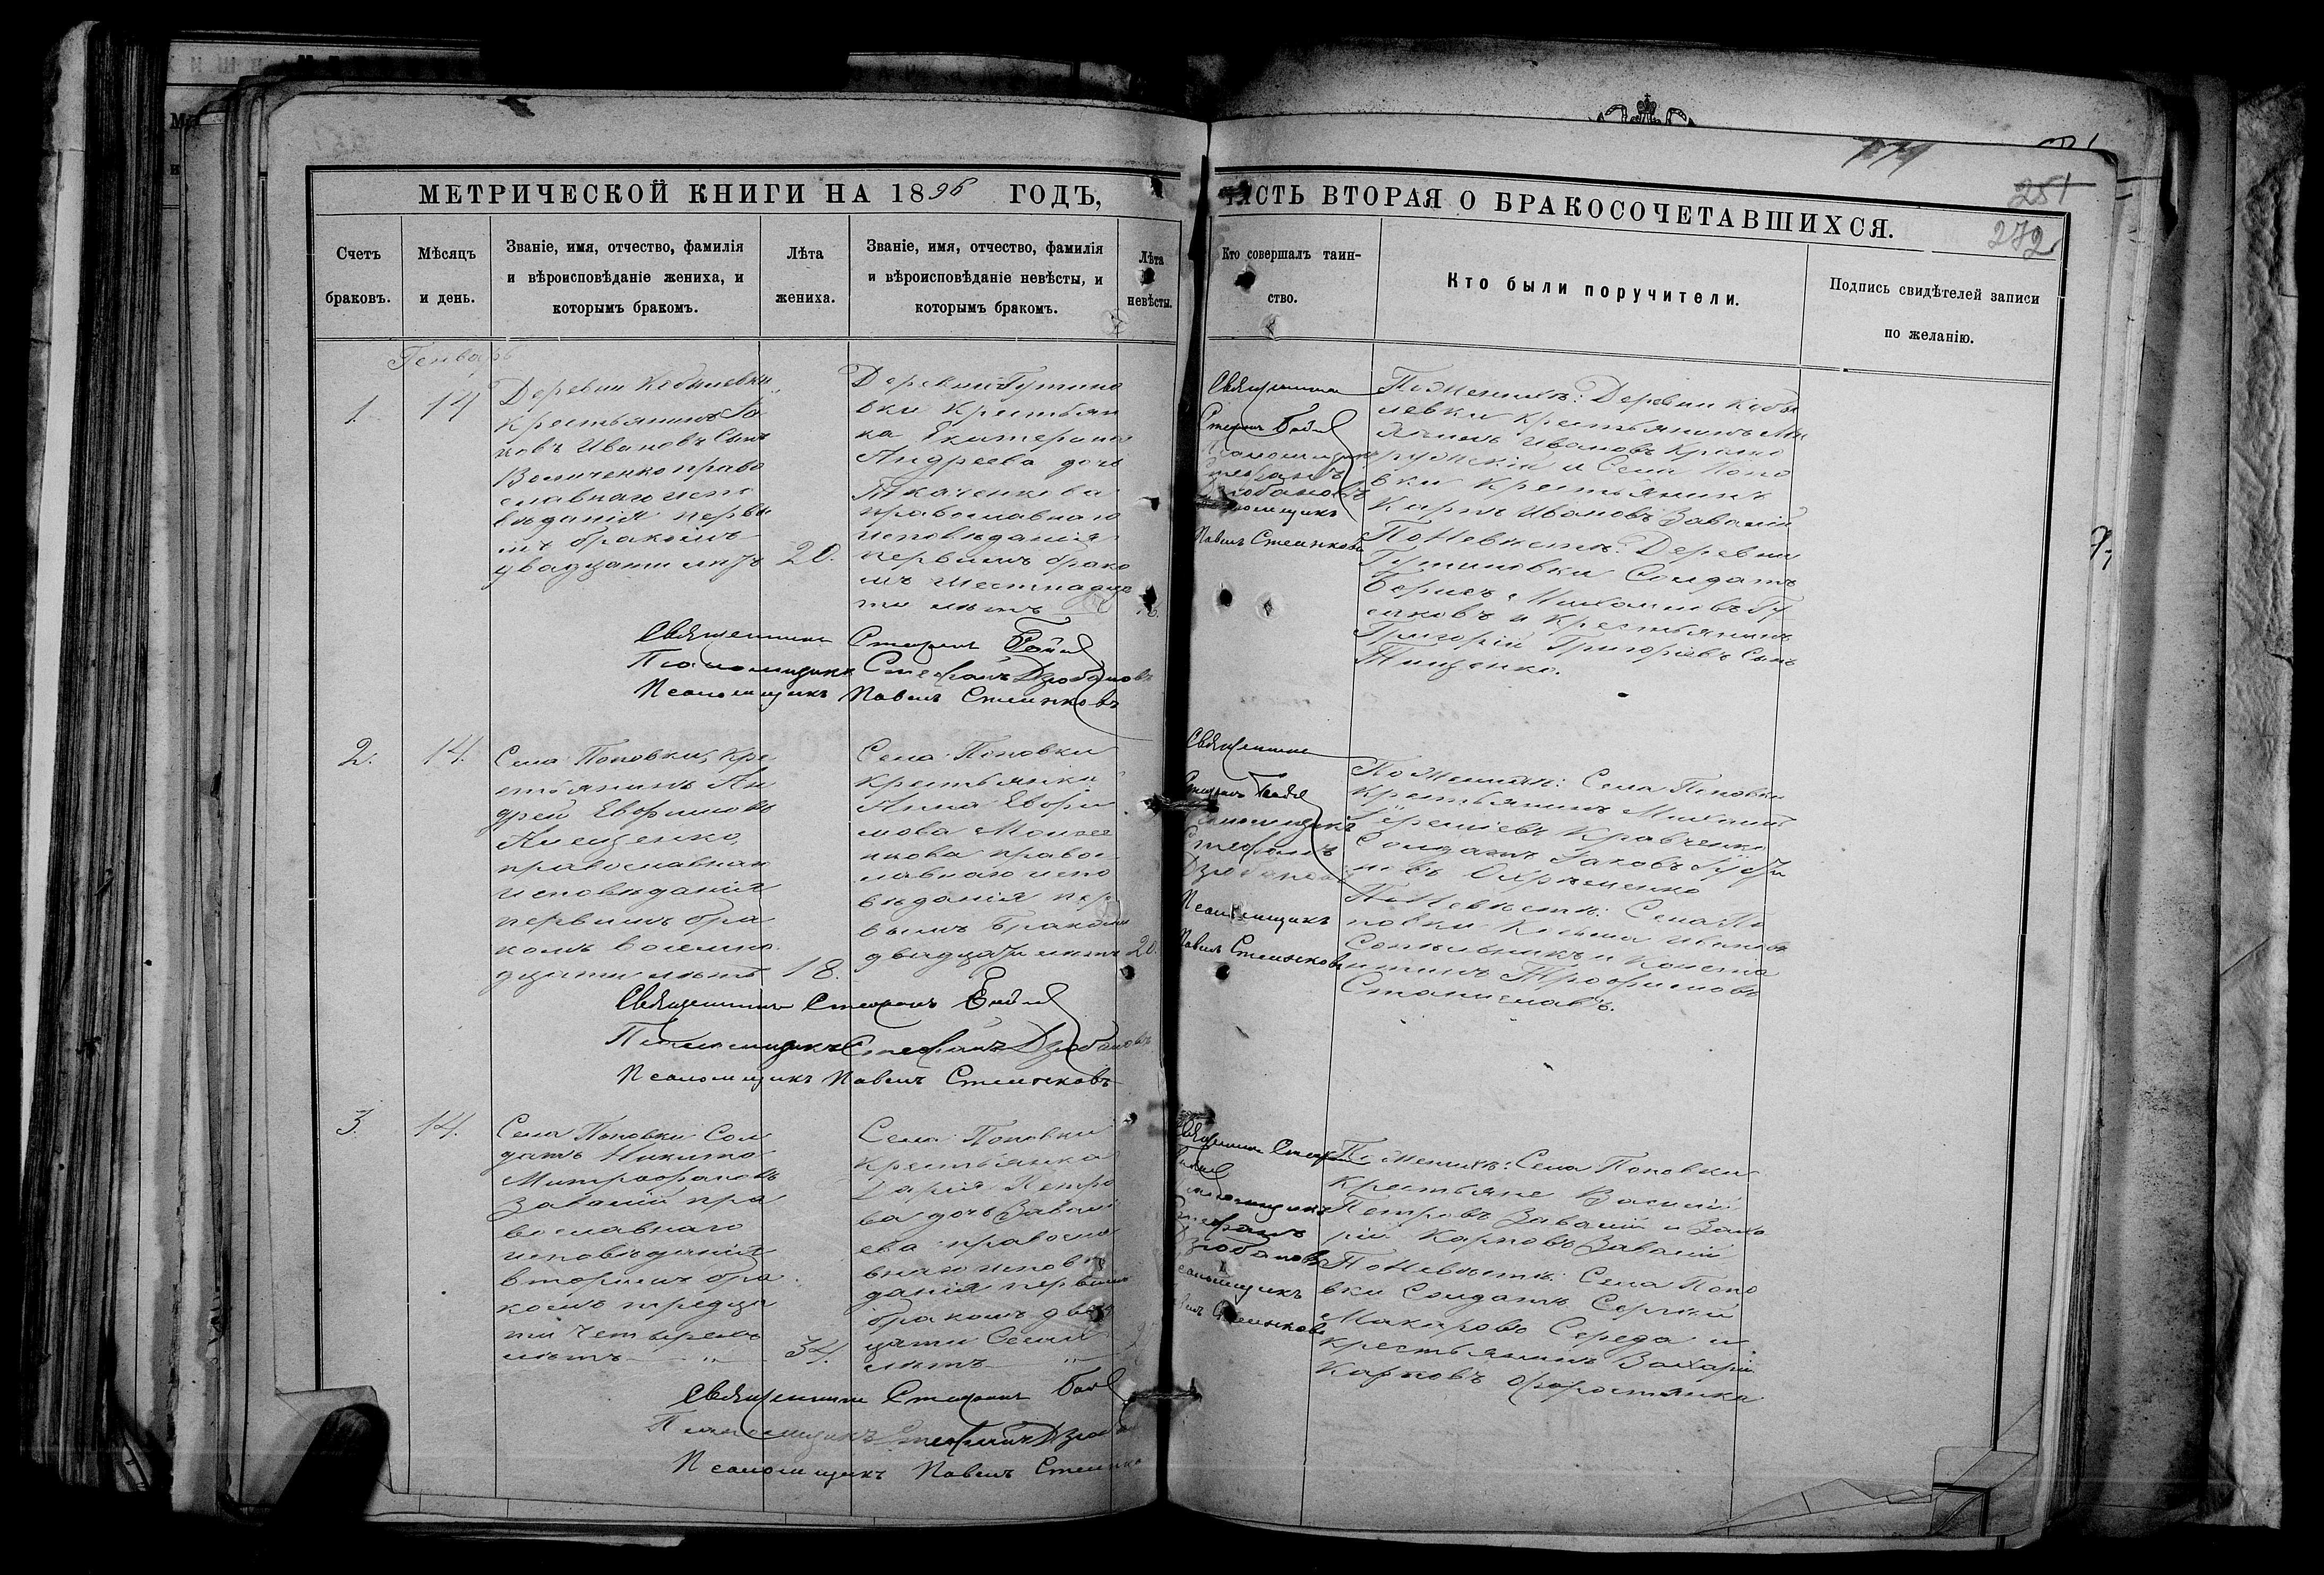 МЕТРИЧЕСКОЙ КНИГИ НА 1896 ГОДЪ,
ЧАСТЬ ВТОРАЯ О БРАКОСОЧЕТАВШИХСЯ.
251
272
Счетъ браковъ.
Мѣсяцъ и день.
Званіе, имя, отчество, фамилія
и вѣроисповѣданіе жениха, и
которымъ бракомъ.
Лѣта жениха.
Званіе, имя, отчество, фамилія
и вѣроисповѣданіе невѣсты, и
которымъ бракомъ.
Лѣта невѣсты.
Кто совершалъ таинство.
Кто были поручители.
Подпись свидѣтелей записи
по желанію.
Генварь
1.
14
Деревни
крестьянинъ Іа
ковъ Ивановъ Сынъ
право
славнаго испо
вѣданія первы
мъ бракомъ
двадцати лѣтъ
20.
Деревни Гутино
вки Крестьян
ка Екатерина
Андреева дочь
Ткаченкова
православнаго
исповѣданія
первымъ брако
мъ шестнадца
ти лѣтъ
16.
Священникъ
Стефанъ
Псаломщикъ
Стефанъ
Дзюбановъ
Псаломщикъ
Павелъ
По Женихѣ: Деревни Кобы
левки крестьянинъ
Ивановъ
и Села Попо
вки Крестьянинъ
Карпъ Ивановъ Завалій
По Невѣстѣ: Деревни
Гутиновки Солдатъ
Борисъ Михаиловъ Гу
саковъ и Крестьянинъ
Григорій Григоріевъ Сынъ
Тищенко.
Священникъ Стефанъ
Псаломщикъ Стефанъ Дзюбановъ
Псаломщикъ Павелъ
2.
14.
Села Поповки, Кре
стьянинъ Ан
дрей Евфимовъ
Алещенко,
православнаго
исповѣданія
первымъ бра
комъ восемна
дцати лѣтъ
18.
Села Поповки
Крестьянка
Анна Евфи
мова Моисее
нкова право
славнаго испо
вѣданія пер
вымъ бракомъ
двадцати лѣтъ
20.
Священникъ
Стефанъ
Псаломщикъ
Стефанъ
Дзюбановъ
Псаломщикъ
Павелъ
По Женихѣ: Села Поповки
Крестьянинъ Михаилъ
Кравченко
Солдатъ Іаковъ
Охрименко
По Невѣстѣ: Села По
повки Козьма Ивановъ
Сопельникъ и Конста
нтинъ Трофимовъ
Станиславъ.
Священникъ Стефанъ
Псаломщикъ Стефанъ Дзюбановъ
Псаломщикъ Павелъ
3.
14.
Села Поповки Сол
датъ Никита
Митрофановъ
Завалій пра
вославнаго
исповѣданія
вторымъ бра
комъ тредца
ти четырехъ
лѣтъ
34.
Села Поповки
Крестьянка
Дарія Петро
ва дочь Завалі
ева правосла
внаго исповѣ
данія первымъ
бракомъ двад
цати Семи
лѣтъ
Священникъ Стефанъ
Псаломщикъ
Стефанъ
Дзюбановъ
Псаломщикъ
Павелъ
По Женихѣ: Села Поповки
Крестьяне Василій
Петровъ Завалій и Заха
рій Карповъ Завалій
По Невѣстѣ: Села Попо
вки Солдатъ Сергій
Макаровъ Середа и
крестьянинъ Захарій
Карповъ Форостянко
Священникъ Стефанъ
Псаломщикъ Стефанъ
Псаломщикъ Павелъ